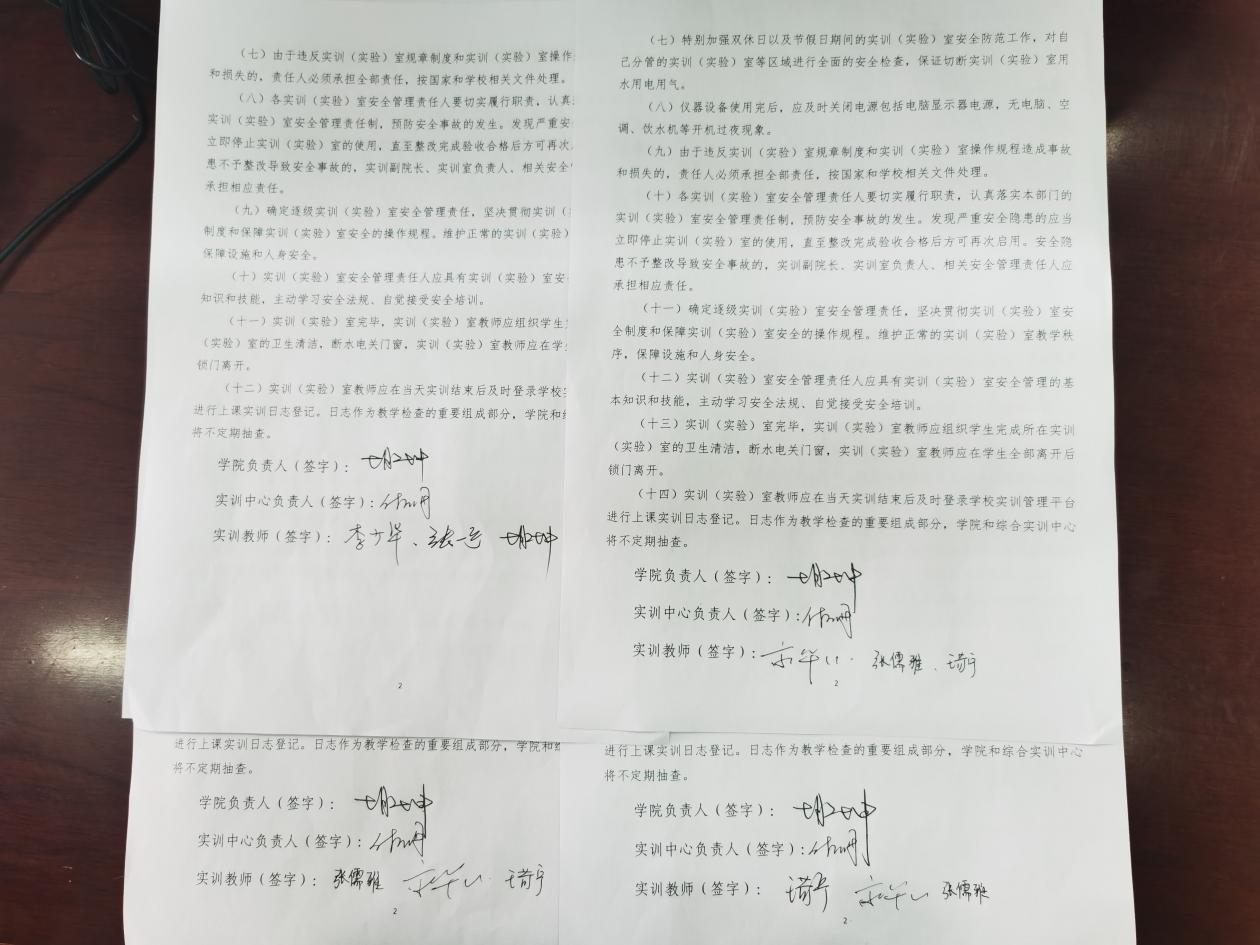 （七）由于违反实训（实验）室规章制度和实训（实验）室操作
和损失的，责任人必须承担全部责任，按国家和学校相关文件处理。
（八）各实训（实验）室安全管理责任人要切实履行职责，认真
实训（实验）室安全管理责任制，预防安全事故的发生。发现严重安
立即停止实训（实验）室的使用，直至整改完成验收合格后方可再次
患不予整改导致安全事故的，实训副院长、实训室负责人、相关安全
承担相应责任。
（九）确定逐级实训（实验）室安全管理责任，坚决贯彻实训（
制度和保障实训（实验）室安全的操作规程。维护正常的实训（实验）
保障设施和人身安全。
（十）实训（实验）室安全管理责任人应具有实训（实验）室安
知识和技能，主动学习安全法规、自觉接受安全培训。
（十一）实训（实验）室完毕，实训（实验）室教师应组织学生
（实验）室的卫生清洁，断水电关门窗，实训（实验）室教师应在学
锁门离开。
（十二）实训（实验）室教师应在当天实训结束后及时登录学校
进行上课实训日志登记。日志作为教学检查的重要组成部分，学院和
将不定期抽查。
学院负责人（签字）：
实训中心负责人（签字）：
实训教师（签字）：李少华、张一
2
（七）特别加强双休日以及节假日期间的实训（实验）室安全防范工作，对自
己分管的实训（实验）室等区域进行全面的安全检查，保证切断实训（实验）室用
水用电用气。
（八）仪器设备使用完后，应及时关闭电源包括电脑显示器电源，无电脑、空
调、饮水机等开机过夜现象。
（九）由于违反实训（实验）室规章制度和实训（实验）室操作规程造成事故
和损失的，责任人必须承担全部责任，按国家和学校相关文件处理。
（十）各实训（实验）室安全管理责任人要切实履行职责，认真落实本部门的
实训（实验）室安全管理责任制，预防安全事故的发生。发现严重安全隐患的应当
立即停止实训（实验）室的使用，直至整改完成验收合格后方可再次启用。安全隐
患不予整改导致安全事故的，实训副院长、实训室负责人、相关安全管理责任人应
承担相应责任。
（十一）确定逐级实训（实验）室安全管理责任，坚决贯彻实训（实验）室安
全制度和保障实训（实验）室安全的操作规程。维护正常的实训（实验）室教学秩
序，保障设施和人身安全。
（十二）实训（实验）室安全管理责任人应具有实训（实验）室安全管理的基
本知识和技能，主动学习安全法规、自觉接受安全培训。
（十三）实训（实验）室完毕，实训（实验）室教师应组织学生完成所在实训
（实验）室的卫生清洁，断水电关门窗，实训（实验）室教师应在学生全部离开后
锁门离开。
（十四）实训（实验）室教师应在当天实训结束后及时登录学校实训管理平台
进行上课实训日志登记。日志作为教学检查的重要组成部分，学院和综合实训中心
将不定期抽查。
学院负责人（签字）：
实训中心负责人（签字）：
实训教师（签字）：张儒雅、
2
进行上课实训日志登记。日志作为教学检查的重要组成部分，学院和
将不定期抽查。
学院负责人（签字）：
实训中心负责人（签字）：
实训教师（签字）：张儒雅
2
进行上课实训日志登记。日志作为教学检查的重要组成部分，学院和综合实训中心
将不定期抽查。
学院负责人（签字）：
实训中心负责人（签字）：
实训教师（签字）：张儒雅
2